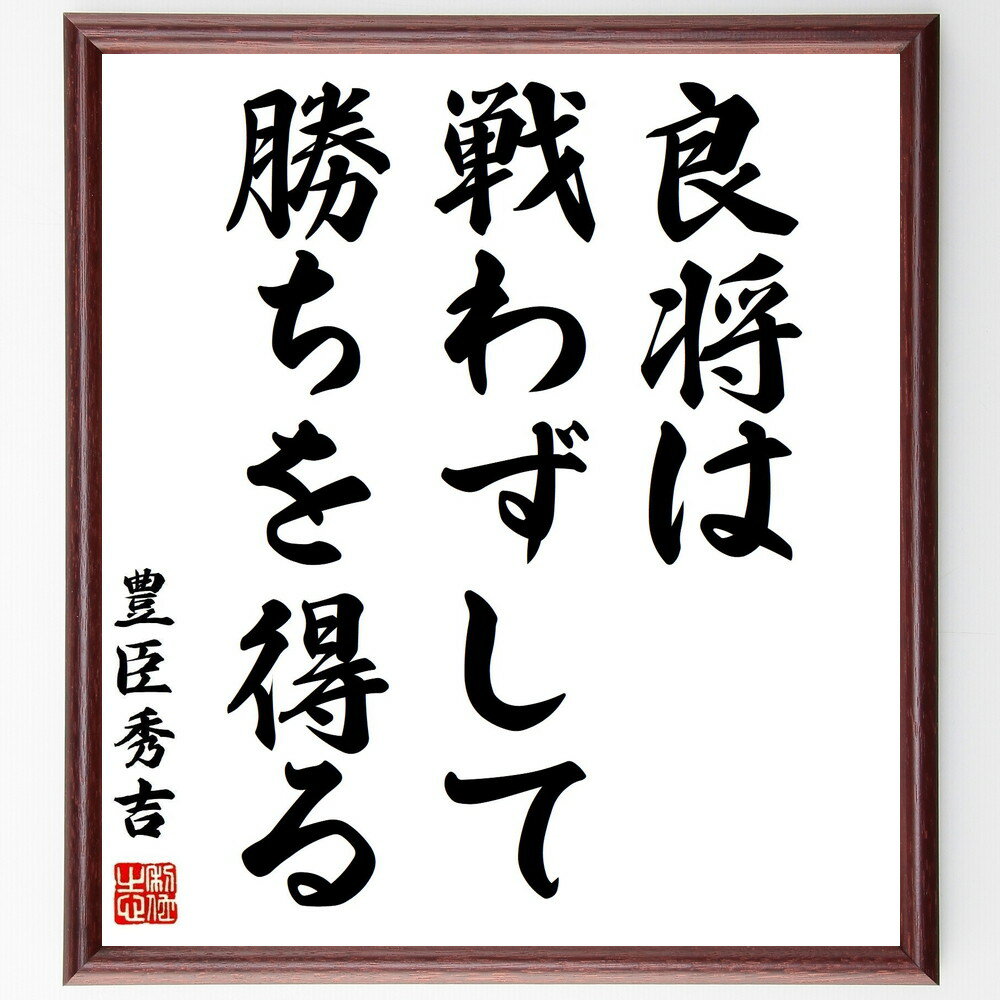 良将は
戦わずして
勝ちを得る
豊臣秀吉